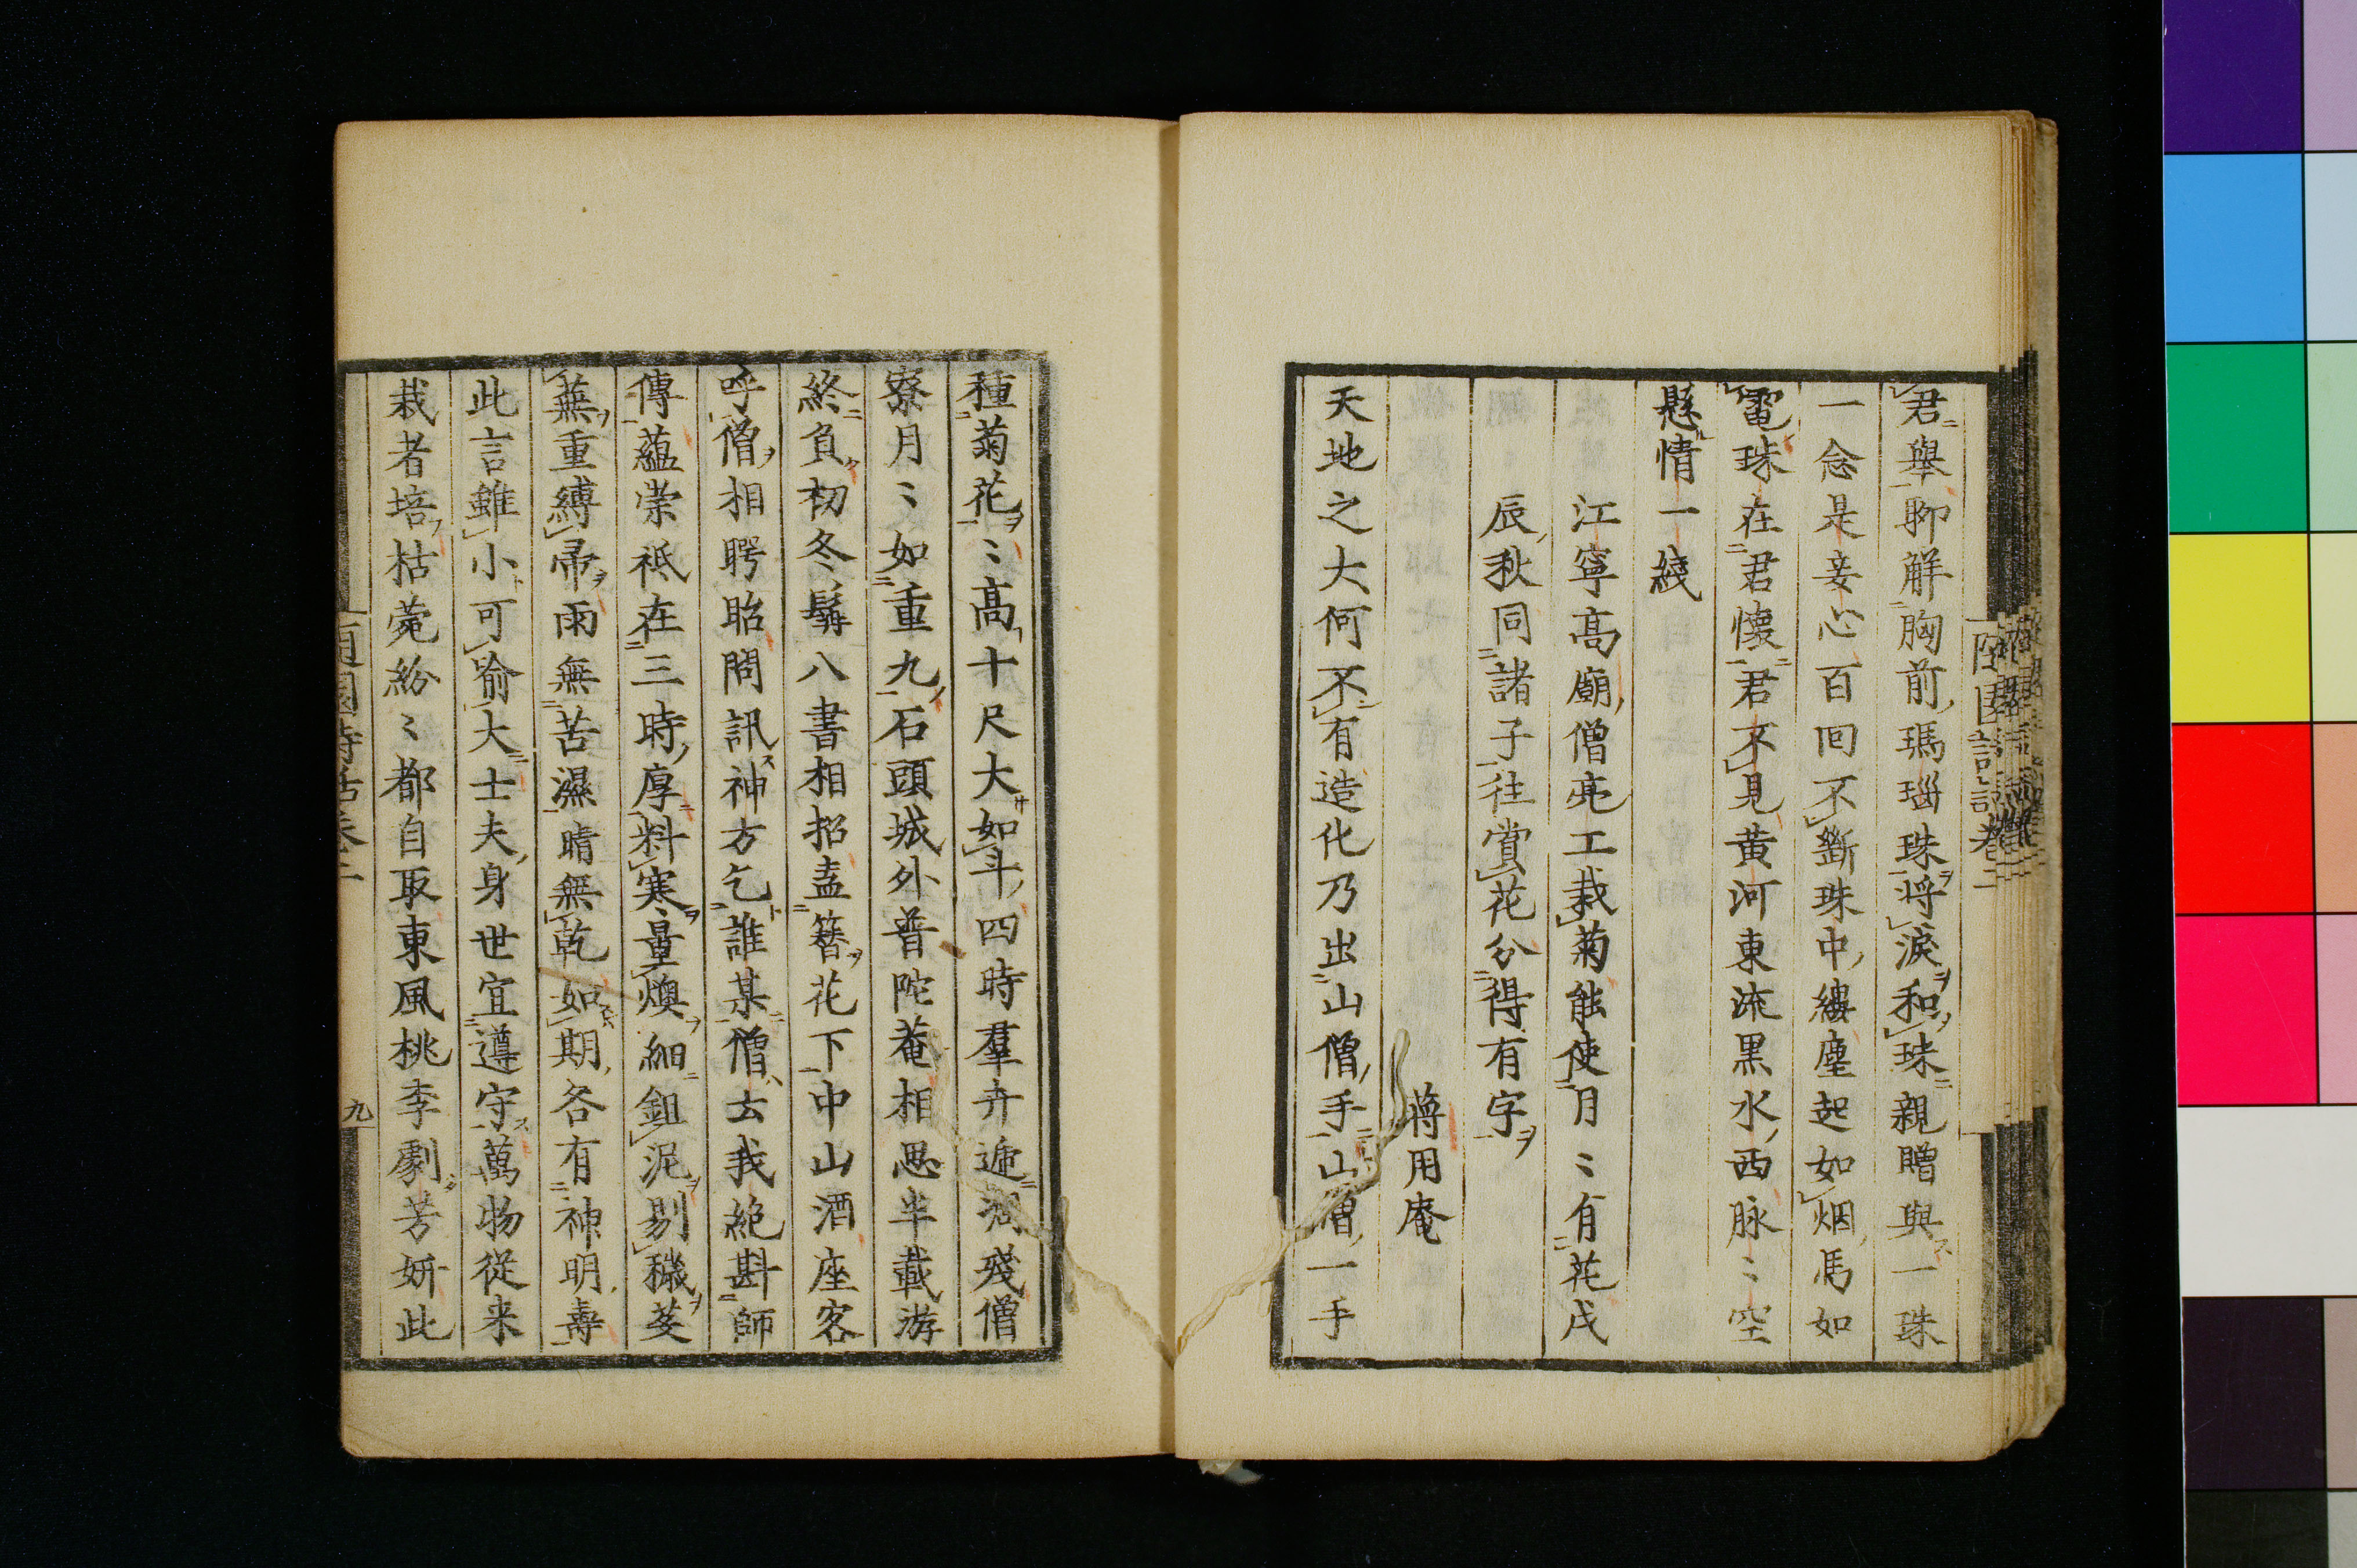 君舉聊解胸前瑪瑙珠将淚和珠親贈與一珠
一念是妾心百回不斷珠中縷塵起如烟馬如
電珠在君懷君不見黄河東流黒水西脉〻空
懸情一綫
江寧高廟僧亮工栽菊能使月〻有花戌
辰秋同諸子往賞花分得有字
蒋用庵
天地之大何不有造化乃出山僧手山僧一手
種菊花〻高十尺大如斗四時羣卉遞凋殘僧
寮月〻如重九石頭城外普陀菴相思半載游
終負初冬髯八書相招盍簪花下中山酒座客
呼僧相腭眙問訊神方乞誰某僧云我絶斟師
傳蘊崇祗在三時厚料寒量燠細鉏泥剔穢芟
蕪重縛帚雨無苦濕晴無乾如期各有神明壽
此言雖小可喻大士夫身世宜遵守萬物從来
栽者培枯菀紛〻都自取東風桃李劇芳妍此
園詩話卷二
九